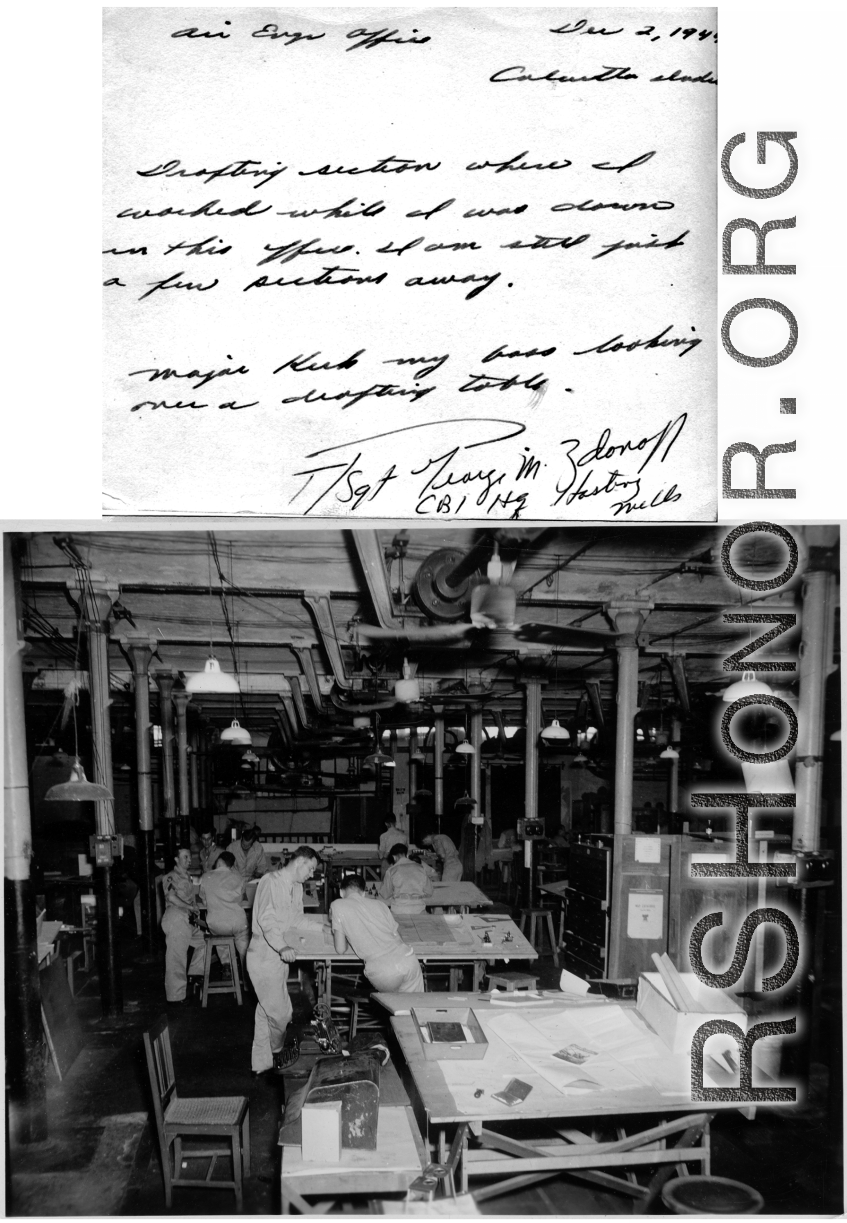 Air Engr Office Dec 2, 1944
Calcutta India
Drafting section where I
worked while I was down
in this office. I am still just
a few sections away.
Major Kirk my boss looking
over a drafting table.
T/Sgt George M. Zdanoff
CBI Hq Hasting
Mills
RSHONOR.ORG